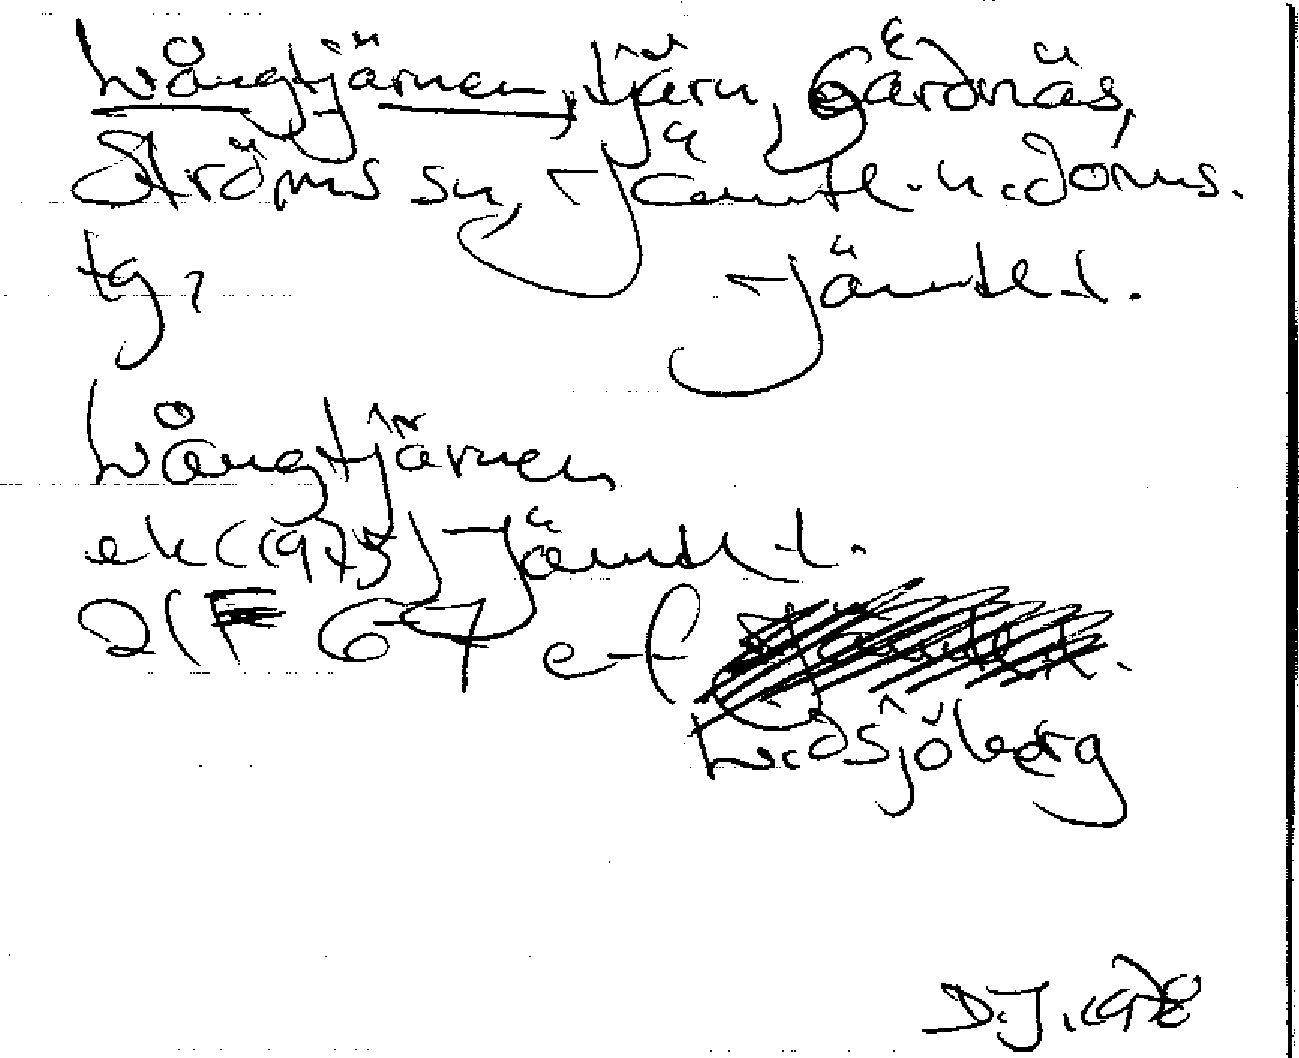 Långtjärnen, tjärn, Gärdnäs,
Ströms sn, Jämtl. n. doms.
tg, Jämtl. l.
Långtjärnen
ek (1975) Jämtl. l.
21F 67 ef
Lidsjöberg
D.J. 1978